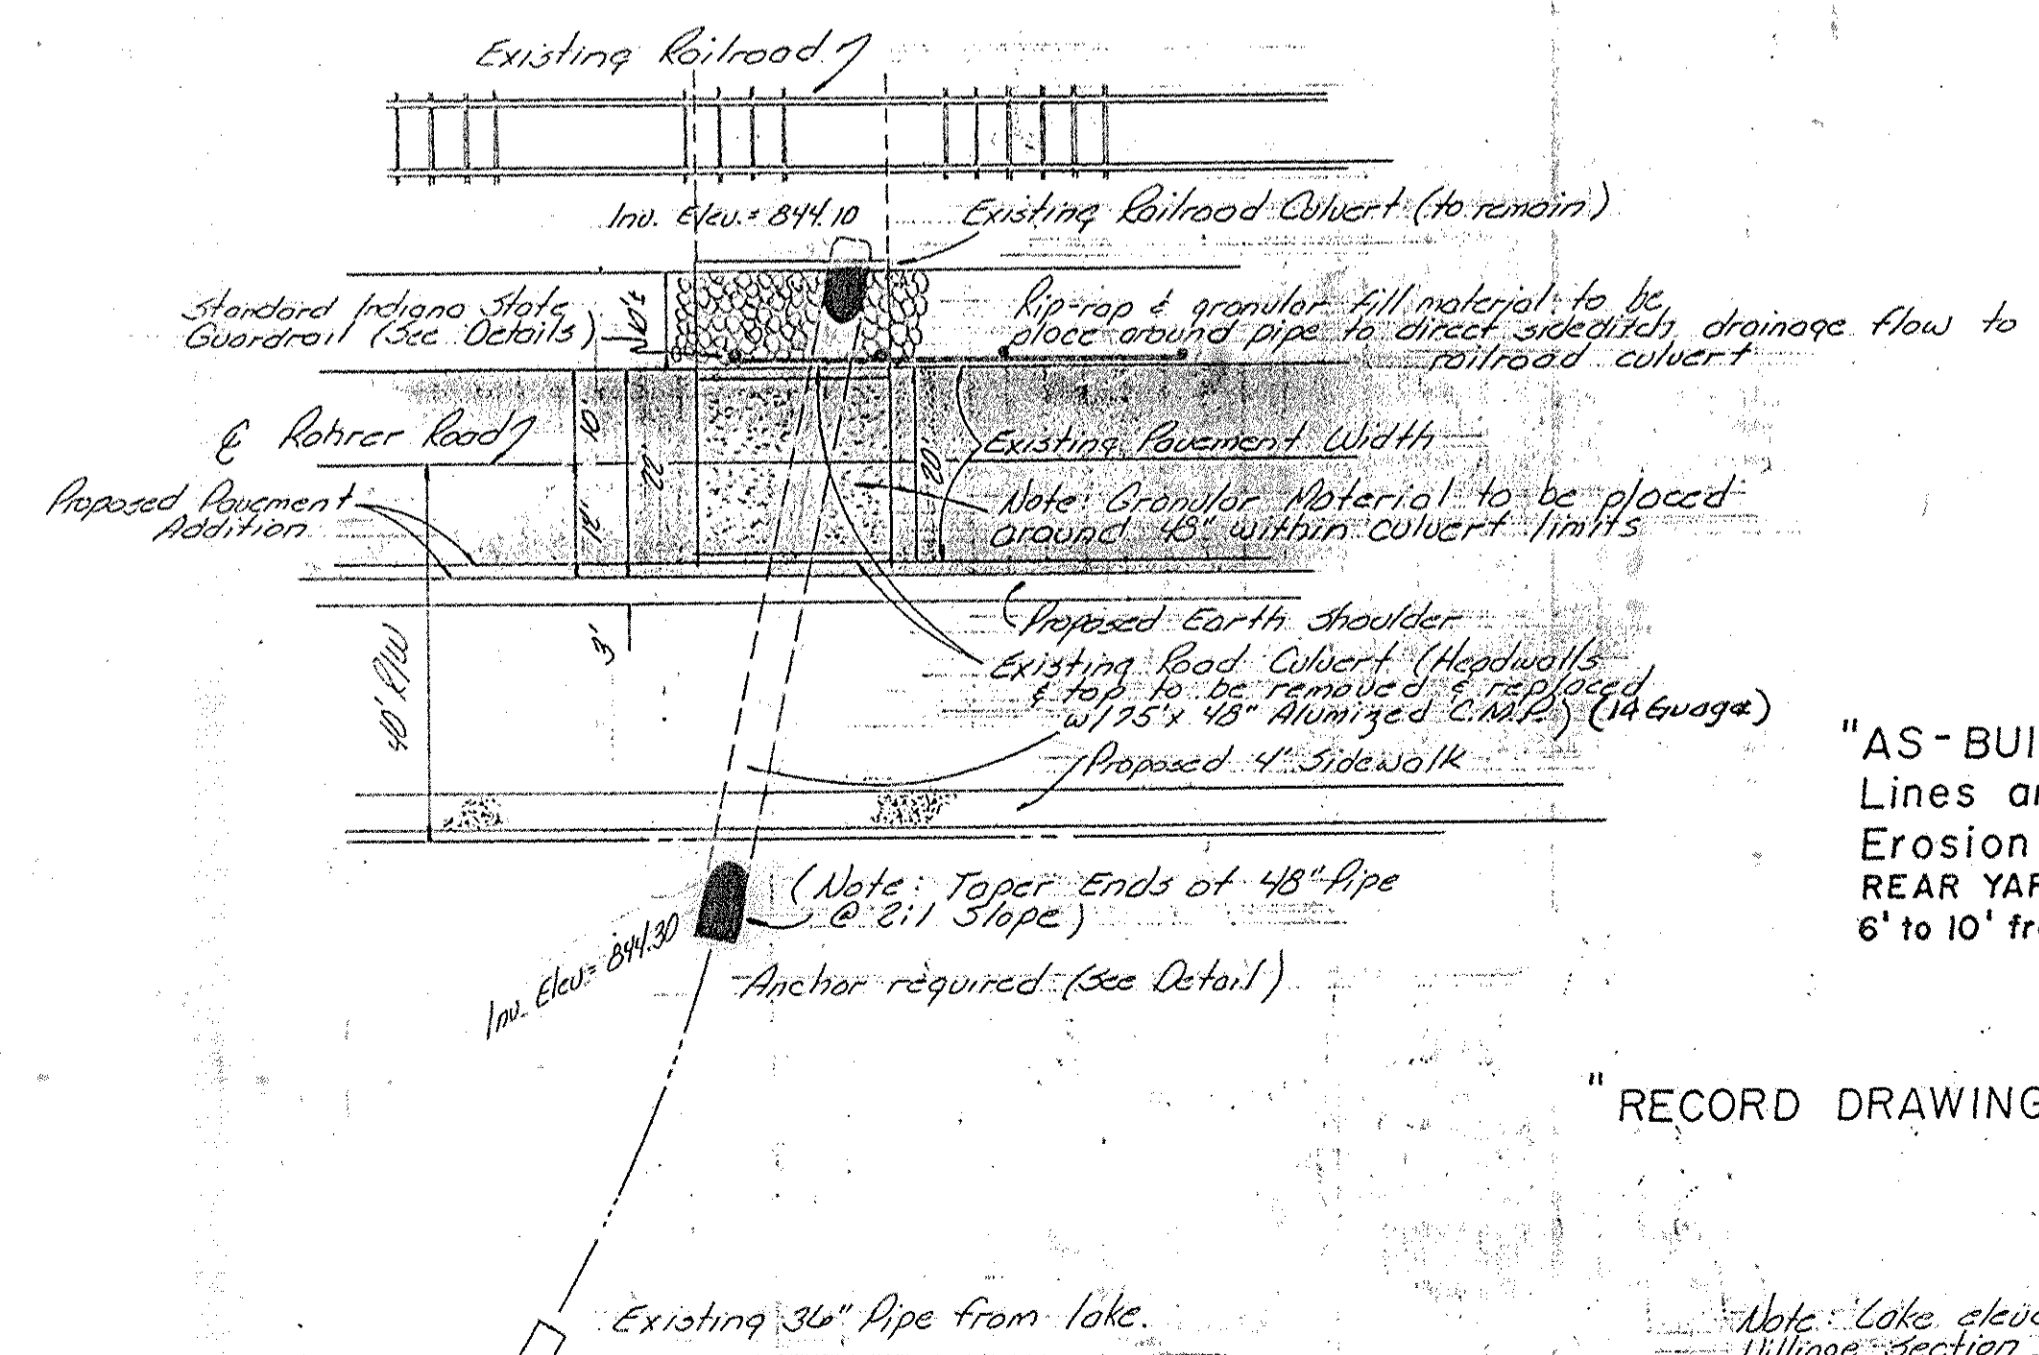 Existing Railroad
Inv. Elev. = 844.10
Existing Railroad Culvert (to remain)
Standard Indiana State
Guardrail (See Details)
10'±
Rip-rap & granular fill material to be
place around pipe to direct sideditch drainage flow to
railroad culvert
℄ Rohrer Road
10'
12'
22'
20'
Existing Pavement Width
Proposed Pavement
Addition
Note: Granular Material to be placed
around 48" within culvert limits
Proposed Earth Shoulder
3'
40' R/W
Existing Road Culvert (Headwalls
& top to be removed & replaced
w/75' x 48" Alumized C.M.P.) (14 Guage)
Proposed 4' Sidewalk
(Note: Taper Ends of 48" Pipe
@ 2:1 Slope)
Inv. Elev. = 844.30
Anchor required (See Detail)
"AS-BUI
Lines a
Erosion
REAR YA
6' to 10' fr
"RECORD DRAWING
Existing 36" Pipe from lake.
Note: Lake eleva
Section